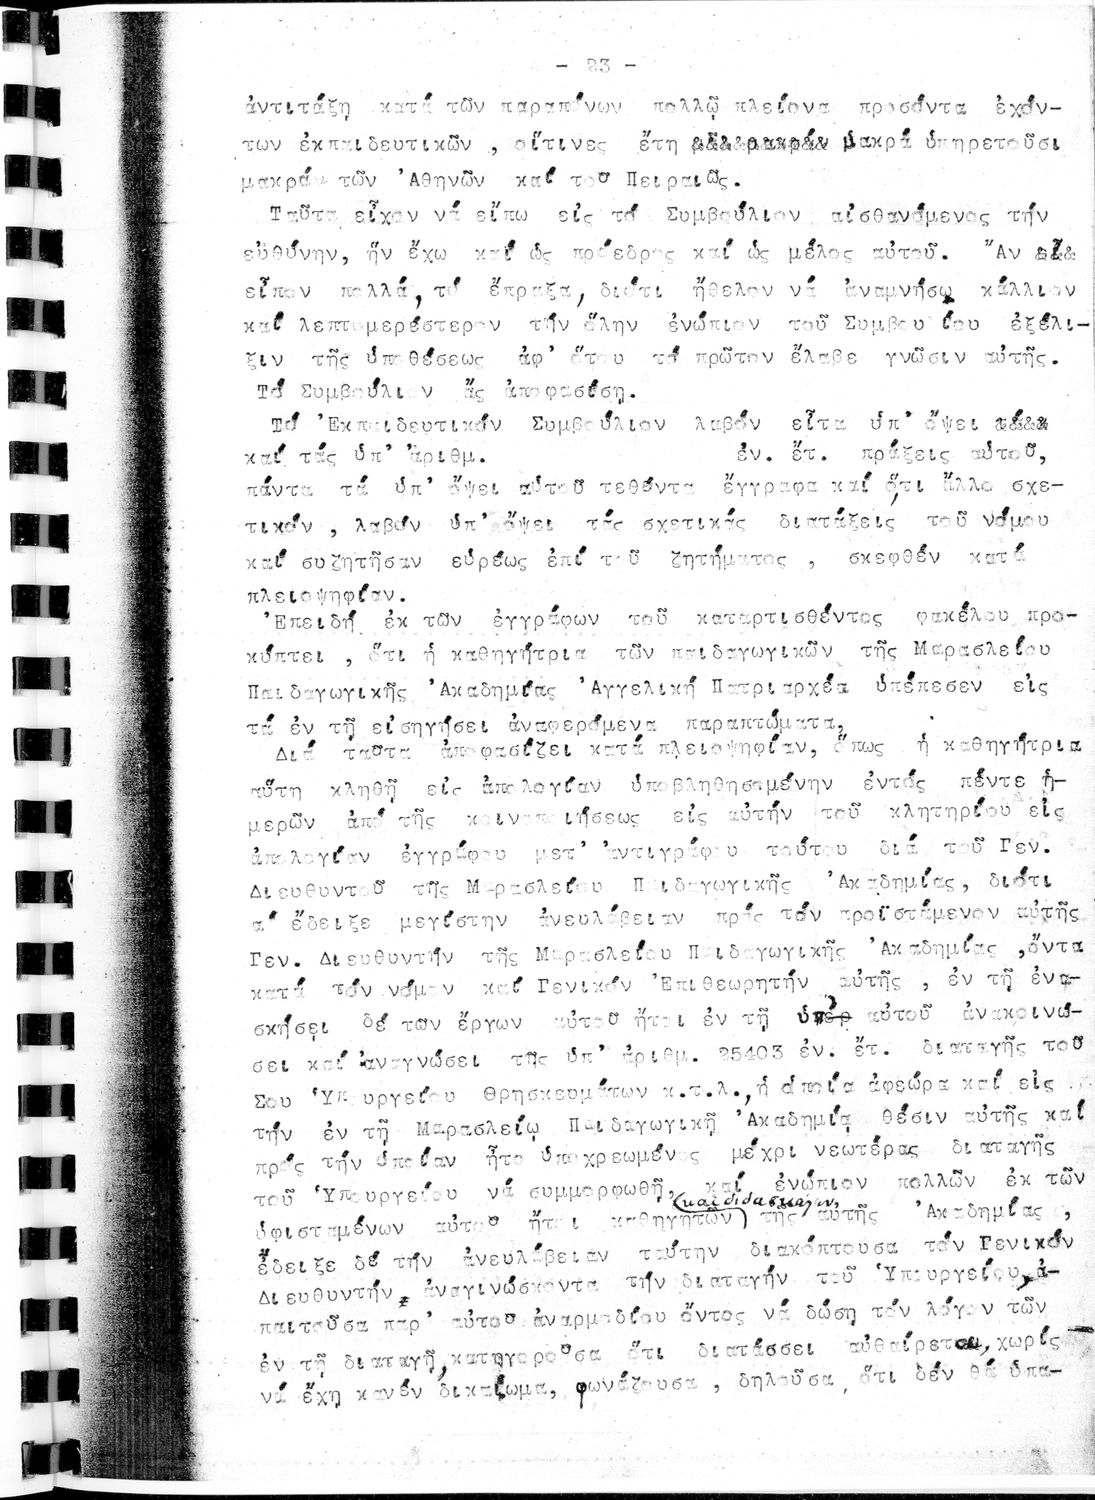 - 23 -
ἀντιτάξῃ κατά τῶν παραπόνων πολλῷ πλείονα προσόντα ἐχόν-
των ἐκπαιδευτικῶν , οἵτινες ἔτη μακρά ὑπηρετοῦσι
μακράν τῶν Ἀθηνῶν καί τοῦ Πειραιῶς.
Ταῦτα εἶχον νά εἴπω εἰς τό Συμβούλιον αἰσθανόμενος τήν
εὐθύνην, ἥν ἔχω καί ὡς πρόεδρος καί ὡς μέλος αὐτοῦ. Ἄν
εἶπον πολλά, τό ἔπραξα, διότι ἤθελον νά ἀναμνήσω κάλλιον
καί λεπτομερέστερον τήν ὅλην ἐνώπιον τοῦ Συμβουλίου ἐξέλι-
ξιν τῆς ὑποθέσεως ἀφ' ὅτου τό πρῶτον ἔλαβε γνῶσιν αὐτῆς.
Τό Συμβούλιον ἄς ἀποφασίσῃ.
Τό Ἐκπαιδευτικόν Συμβούλιον λαβόν εἶτα ὑπ' ὄψει
καί τάς ὑπ' ἀριθμ. ἐν. ἔτ. πράξεις αὐτοῦ,
πάντα τά ὑπ' ὄψει αὐτοῦ τεθέντα ἔγγραφα καί ὅ,τι ἄλλο σχε-
τικόν , λαβόν ὑπ' ὄψει τάς σχετικάς διατάξεις τοῦ νόμου
καί συζητῆσαν εὐρέως ἐπί τοῦ ζητήματος , σκεφθέν κατά
πλειοψηφίαν.
Ἐπειδή ἐκ τῶν ἐγγράφων τοῦ καταρτισθέντος φακέλου προ-
κύπτει , ὅτι ἡ καθηγήτρια τῶν παιδαγωγικῶν τῆς Μαρασλείου
Παιδαγωγικῆς Ἀκαδημίας Ἀγγελική Πατριαρχέα ὑπέπεσεν εἰς
τά ἐν τῇ εἰσηγήσει ἀναφερόμενα παραπτώματα,
Διά ταῦτα ἀποφασίζει κατά πλειοψηφίαν, ὅπως ἡ καθηγήτρια
αὕτη κληθῇ εἰς ἀπολογίαν ὑποβληθησομένην ἐντός πέντε ἡ-
μερῶν ἀπό τῆς κοινοποιήσεως εἰς αὐτήν τοῦ κλητηρίου εἰς
ἀπολογίαν ἐγγράφου μετ' ἀντιγράφου τούτου διά τοῦ Γεν.
Διευθυντοῦ τῆς Μαρασλείου Παιδαγωγικῆς Ἀκαδημίας, διότι
α' ἔδειξε μεγίστην ἀνευλάβειαν πρός τόν προϊστάμενον αὐτῆς
Γεν. Διευθυντήν τῆς Μαρασλείου Παιδαγωγικῆς Ἀκαδημίας ,ὄντα
κατά τόν νόμον καί Γενικόν Ἐπιθεωρητήν αὐτῆς , ἐν τῇ ἐνα-
σκήσει δέ των ἔργων αὐτοῦ ἤτοι ἐν τῇ ὑπ' αὐτοῦ ἀνακοινώ-
σει καί ἀναγνώσει τῆς ὑπ' ἀριθμ. 25403 ἐν. ἔτ. διαταγῆς τοῦ
Σου Ὑπουργείου Θρησκευμάτων κ.τ.λ.,ἡ ὁποία ἀφεώρα καί εἰς
τήν ἐν τῇ Μαρασλείῳ Παιδαγωγικῇ Ἀκαδημίᾳ θέσιν αὐτῆς καί
πρός τήν ὁποίαν ἦτο ὑποχρεωμένος μέχρι νεωτέρας διαταγῆς
τοῦ Ὑπουργείου νά συμμορφωθῇ, καί ἐνώπιον πολλῶν ἐκ τῶν
ὑφισταμένων αὐτοῦ ἤτοι καθηγητῶν (καί διδασκάλων) τῆς αὐτῆς Ἀκαδημίας ,
ἔδειξε δέ τήν ἀνευλάβειαν ταύτην διακόπτουσα τόν Γενικόν
Διευθυντήν, ἀναγινώσκοντα τήν διαταγήν τοῦ Ὑπουργείου, ἀ-
παιτοῦσα παρ' αὐτοῦ ἀναρμοδίου ὄντος νά δώσῃ τόν λόγον τῶν
ἐν τῇ διαταγῇ, κατηγοροῦσα ὅτι διατάσσει αὐθαίρετου, χωρίς
νά ἔχῃ κανέν δικαίωμα, φωνάζουσα , δηλοῦσα ὅτι δέν θά ὑπα-